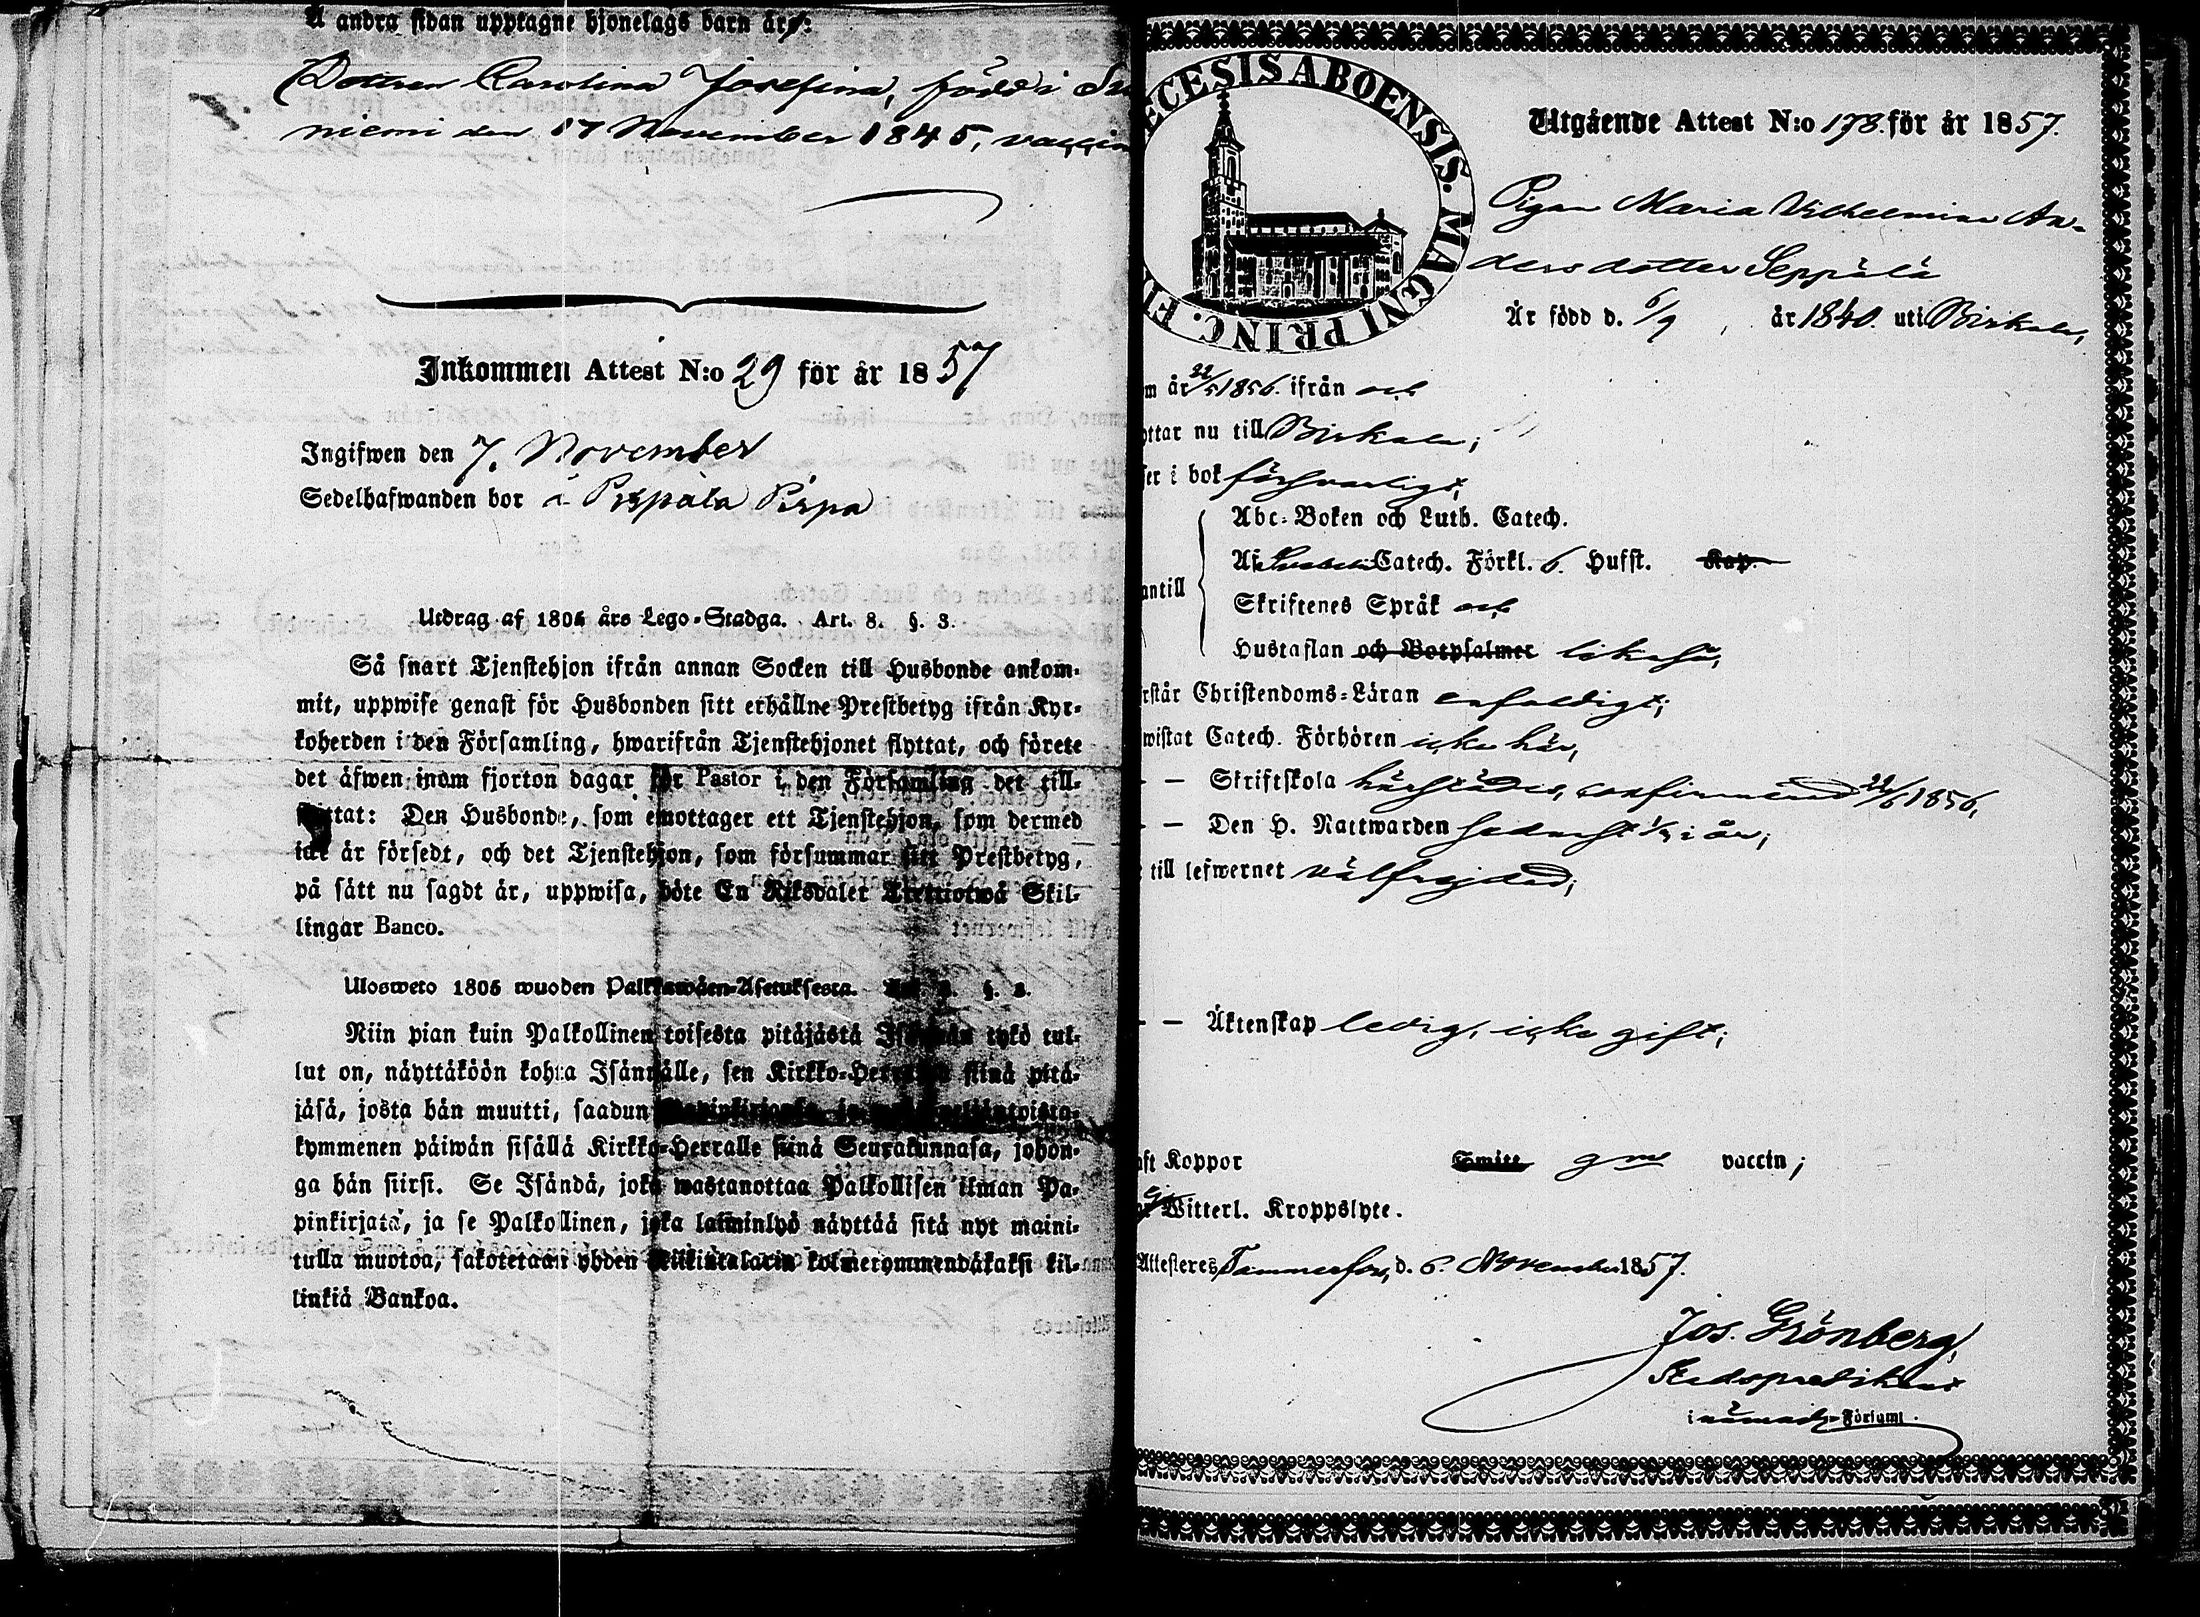 Å andra sidan upptagne hjonelags barn är:
Dottren Carolina Josefina, född i Su
niemi den 17 November 1845, vaccin
Inkommen Attest N:o 29 för år 1857
Ingifwen den 7. November
Sedelhafwanden bor å Pispala Pispa
Utdrag af 1805 års Lego-Stadga. Art. 8. §. 3.
Så snart Tjenstehjon ifrån annan Socken till Husbonde ankom-
mit, uppwise genast för Husbonden sitt erhållne Prestbetyg ifrån Kyr-
koherden i den Församling, hwarifrån Tjenstehjonet flyttat, och förete
det äfwen inom fjorton dagar för Pastor i den Församling det till-
flyttat: Den Husbonde, som emottager ett Tjenstehjon, som dermed
icke är försedt, och det Tjenstehjon, som försummar sitt Prestbetyg,
på sätt nu sagdt är, uppwisa, böte En Riksdaler Trettiotwå Skil-
lingar Banco.
Ulosweto 1805 wuoden Palkkawäen-Asetuksesta. §. 3.
Niin pian kuin Palkollinen toisesta pitäjästä Isännän tykö tul-
lut on, näyttäköön kohta Isännälle, sen Kirkko-Herralta siinä pitä-
jäsä, josta hän muutti, saadun
kymmenen päiwän sisällä Kirkko-Herralle siinä Seurakunnasa, johon-
ga hän siirsi. Se Isändä, joka wastanottaa Palkollisen ilman Pa-
pinkirjata, ja se Palkollinen, joka laiminlyö näyttää sitä nyt maini-
tulla muotoa, sakotetaan yhden Riikintalarin kolmekymmendäkaksi kil-
linkiä Bankoa.
ECESIS ABOENSIS. MAGNI PRINC. FI
Utgående Attest N:o 178. för år 1857.
Pigan Maria Vilhelmina An-
dersdotter Seppälä
Är född d. 6/9 år 1840. uti Birkala,
m år 22/5 1856. ifrån och
ottar nu till Birkala;
ser i bok försvarligt,
Abc-Boken och Luth. Catech.
Af Svebelii Catech. Förkl. 6. Hufst. Kap.
antill
Skriftenes Språk och
Hustaflan och Botpsalmer likaså,
rstår Christendoms-Läran enfaldigt;
wistat Catech. Förhören icke här,
— — Skriftskola härstädes, confirmerad 22/6 1856,
— — Den H. Nattwarden sednast i år;
till lefwernet välfrejdad;
— — Äktenskap ledig, icke gift;
aft Koppor Smitt gm vaccin;
Witterl. Kroppslyte.
Attesteres Tammerfors, d. 6. November 1857.
Jos. Grönberg,
Stadspredikant
i nämnde Församl.